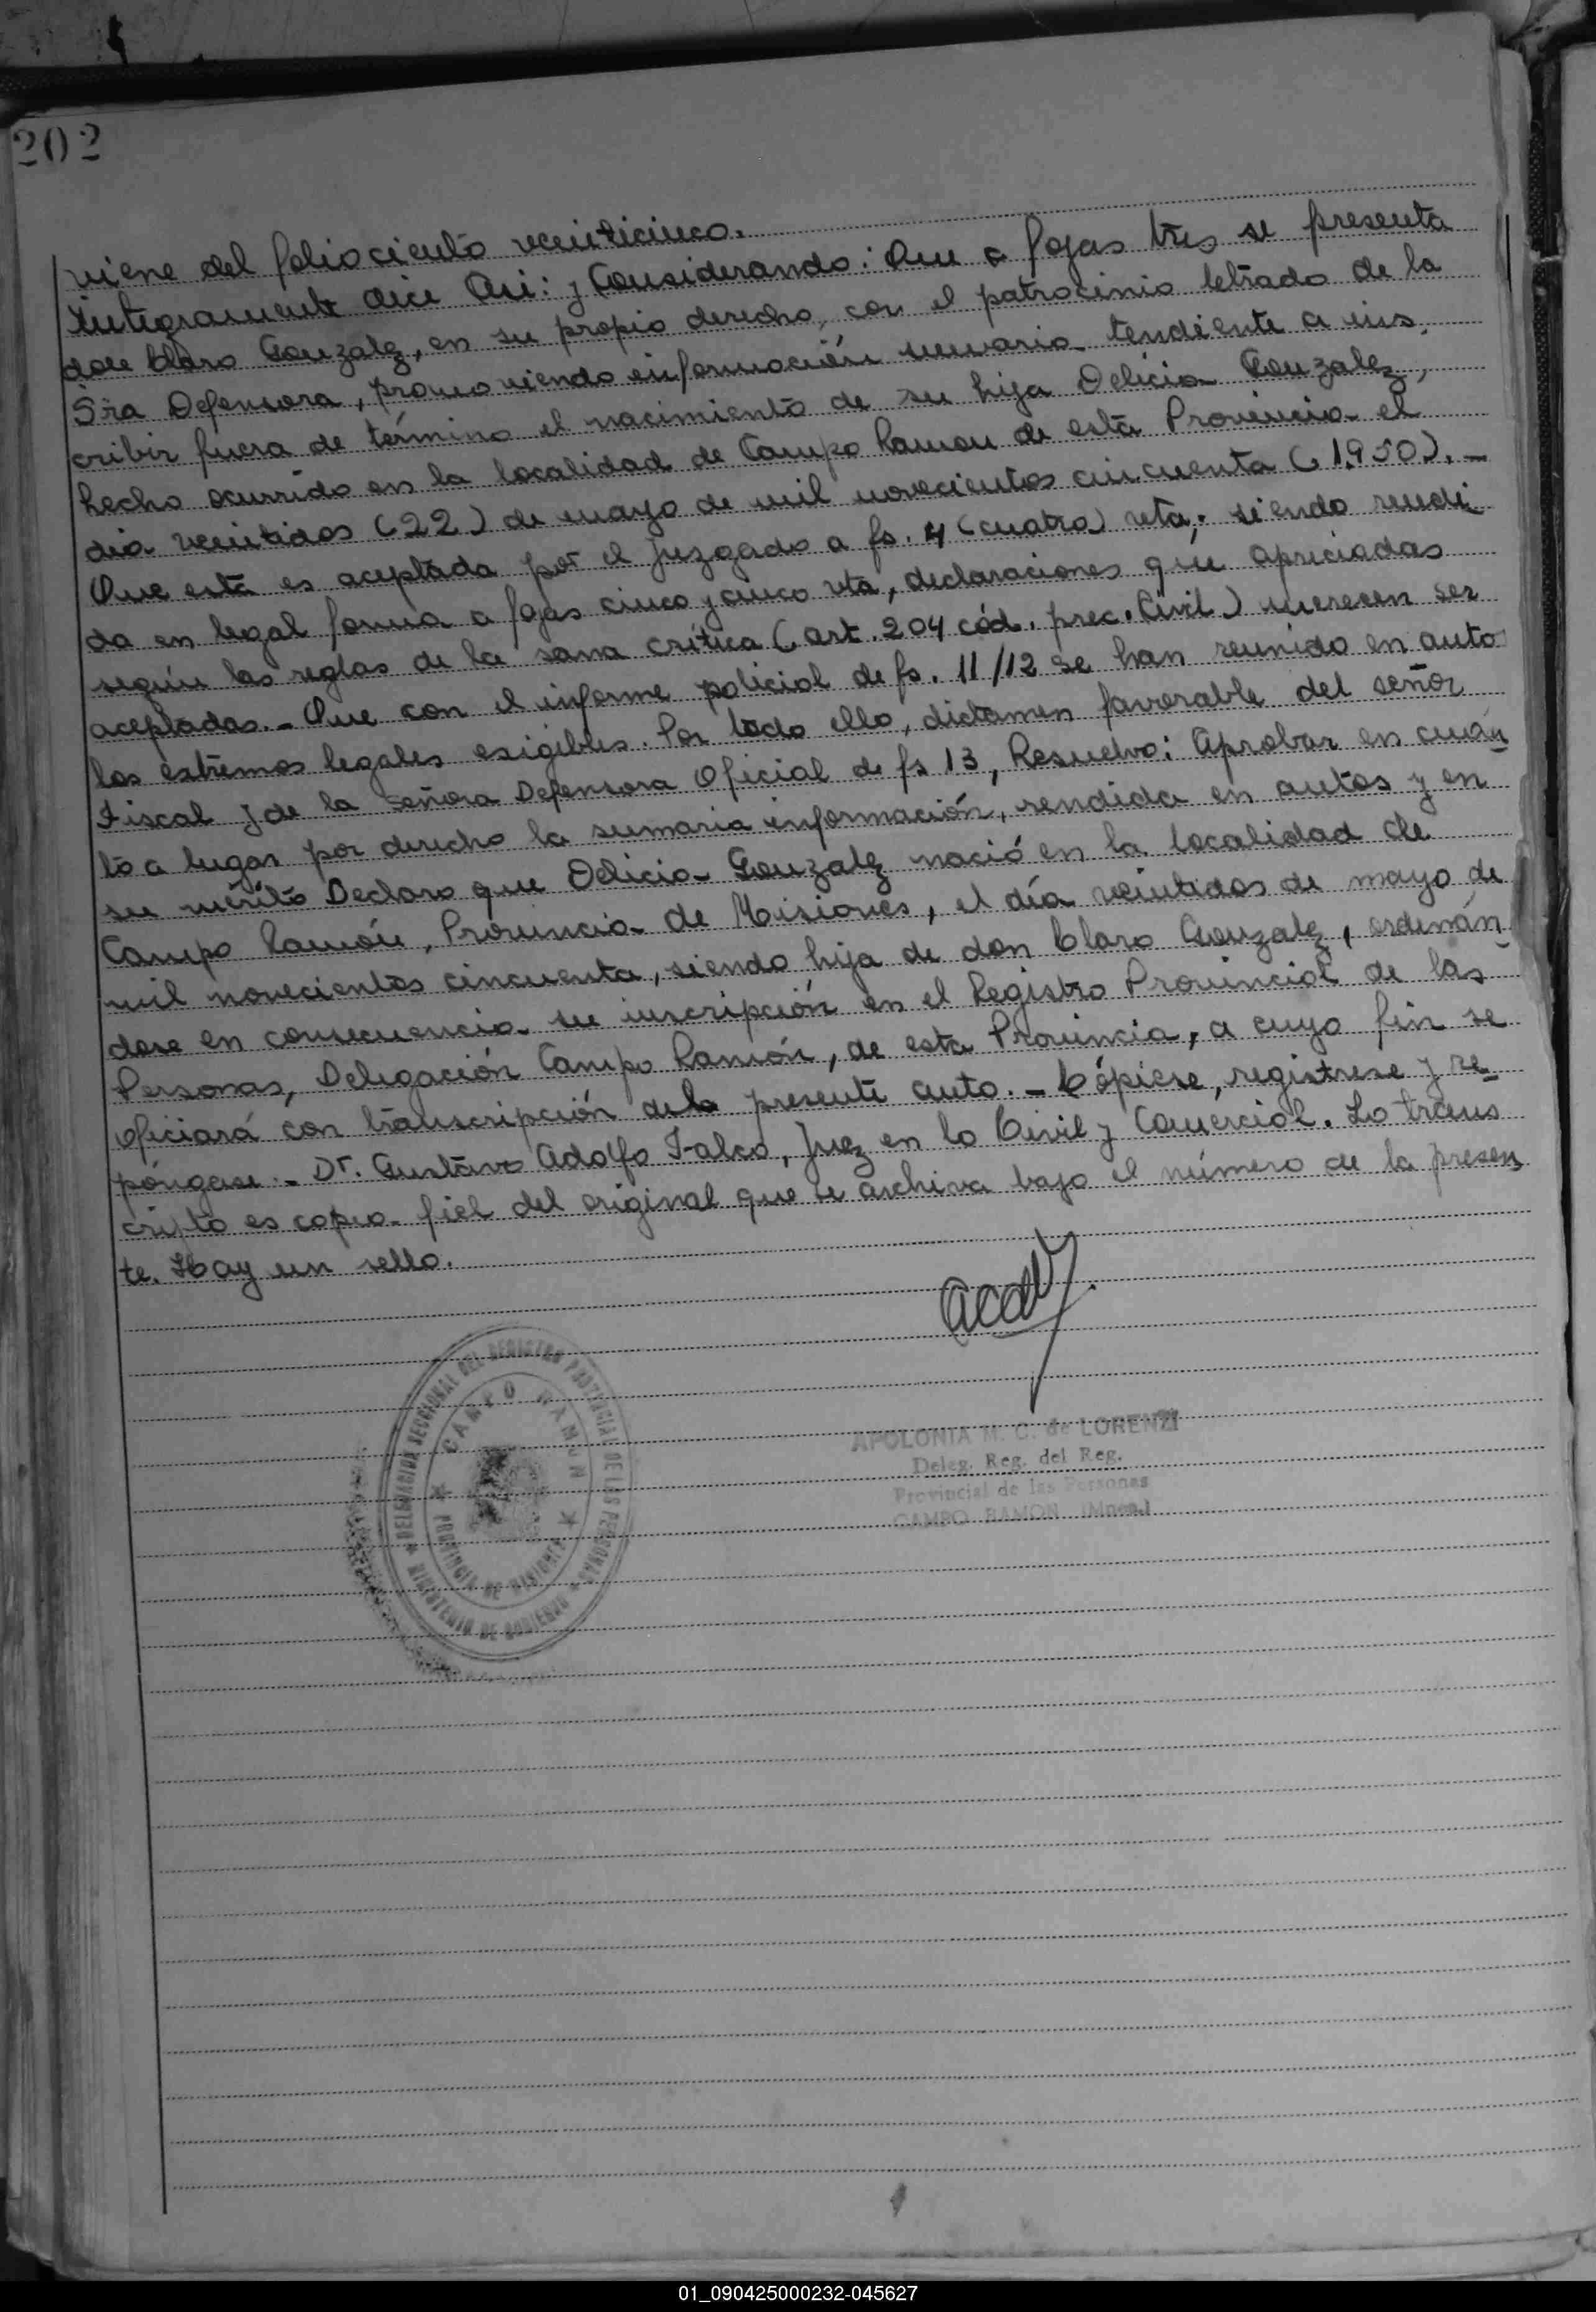 202
viene del folio ciento veinticinco.
Integramente dice Asi: y Considerando: Que a fojas tres se presenta
don Claro Gonzalez, en su propio derecho, con el patrocinio letrado de la
Sra Defensora, promoviendo información sumaria tendiente a ins
cribir fuera de término el nacimiento de su hija Delicia Gonzalez,
hecho ocurrido en la localidad de Campo Ramon de esta Provincia el
dia veintidos (22) de mayo de mil novecientos cincuenta (1.950). -
Que esta es aceptada por el juzgado a fs. 4 (cuatro) vta; siendo rendi
da en legal forma a fojas cinco y cinco vta, declaraciones que apreciadas
según las reglas de la sana crítica (art. 204 cód. proc. Civil) merecen ser
aceptadas. - Que con el informe policial de fs. 11/12 se han reunido en autos
los estremos legales exigibles. Por todo ello, dictamen favorable del señor
Fiscal y de la señora Defensora Oficial de fs 13, Resuelvo: Aprobar en cuán
to a lugar por derecho la sumaria información, rendida en autos y en
su mérito Declaro que Delicia Gonzalez nació en la localidad de
Campo Ramón, Provincia de Misiones, el día veintidos de mayo de
mil novecientos cincuenta, siendo hija de don Claro Gonzalez, ordenán
dose en consecuencia su inscripción en el Registro Provincial de las
Personas, Delegación Campo Ramón, de esta Provincia, a cuyo fin se
oficiará con transcripción de la presente auto. - Cópiese, registrese y re
póngase. - Dr. Gustavo Adolfo Falco, Juez en lo Civil y Comercial. Lo trans
cripto es copia fiel del original que se archiva bajo el número de la presen
te. Hay un sello.
DELEGACION SECCIONAL DEL REGISTRO PROVINCIAL DE LAS PERSONAS
CAMPO RAMON
PROVINCIA DE MISIONES
MINISTERIO DE GOBIERNO
APOLONIA M. C. de LORENZI
Deleg. Reg. del Reg.
Provincial de las Personas
CAMPO RAMON (Mnes.)
01_090425000232-045627